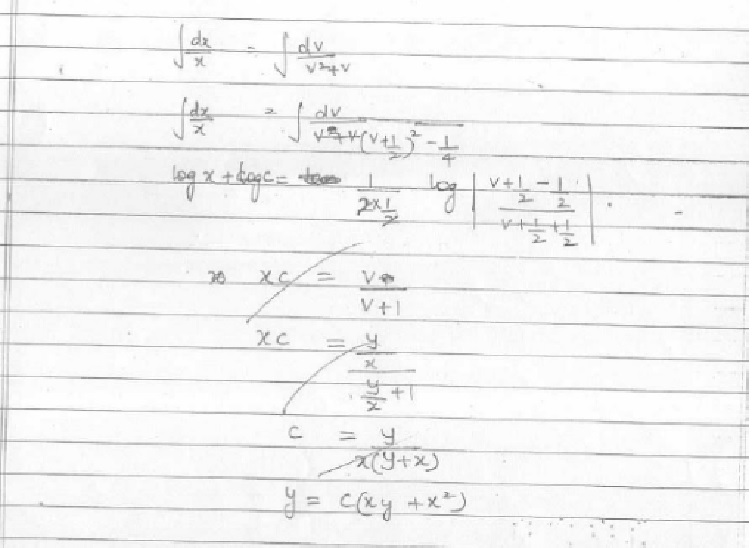 ∫ dx/x = ∫ dv/(v²+v)
∫ dx/x = ∫ dv/((v+1/2)² - 1/4)
log x + log c = 1/(2×1/2) log |(v+1/2 - 1/2)/(v+1/2+1/2)|
xc = v/(v+1)
xc = (y/x)/(y/x + 1)
c = y/(x(y+x))
y = c(xy + x²)